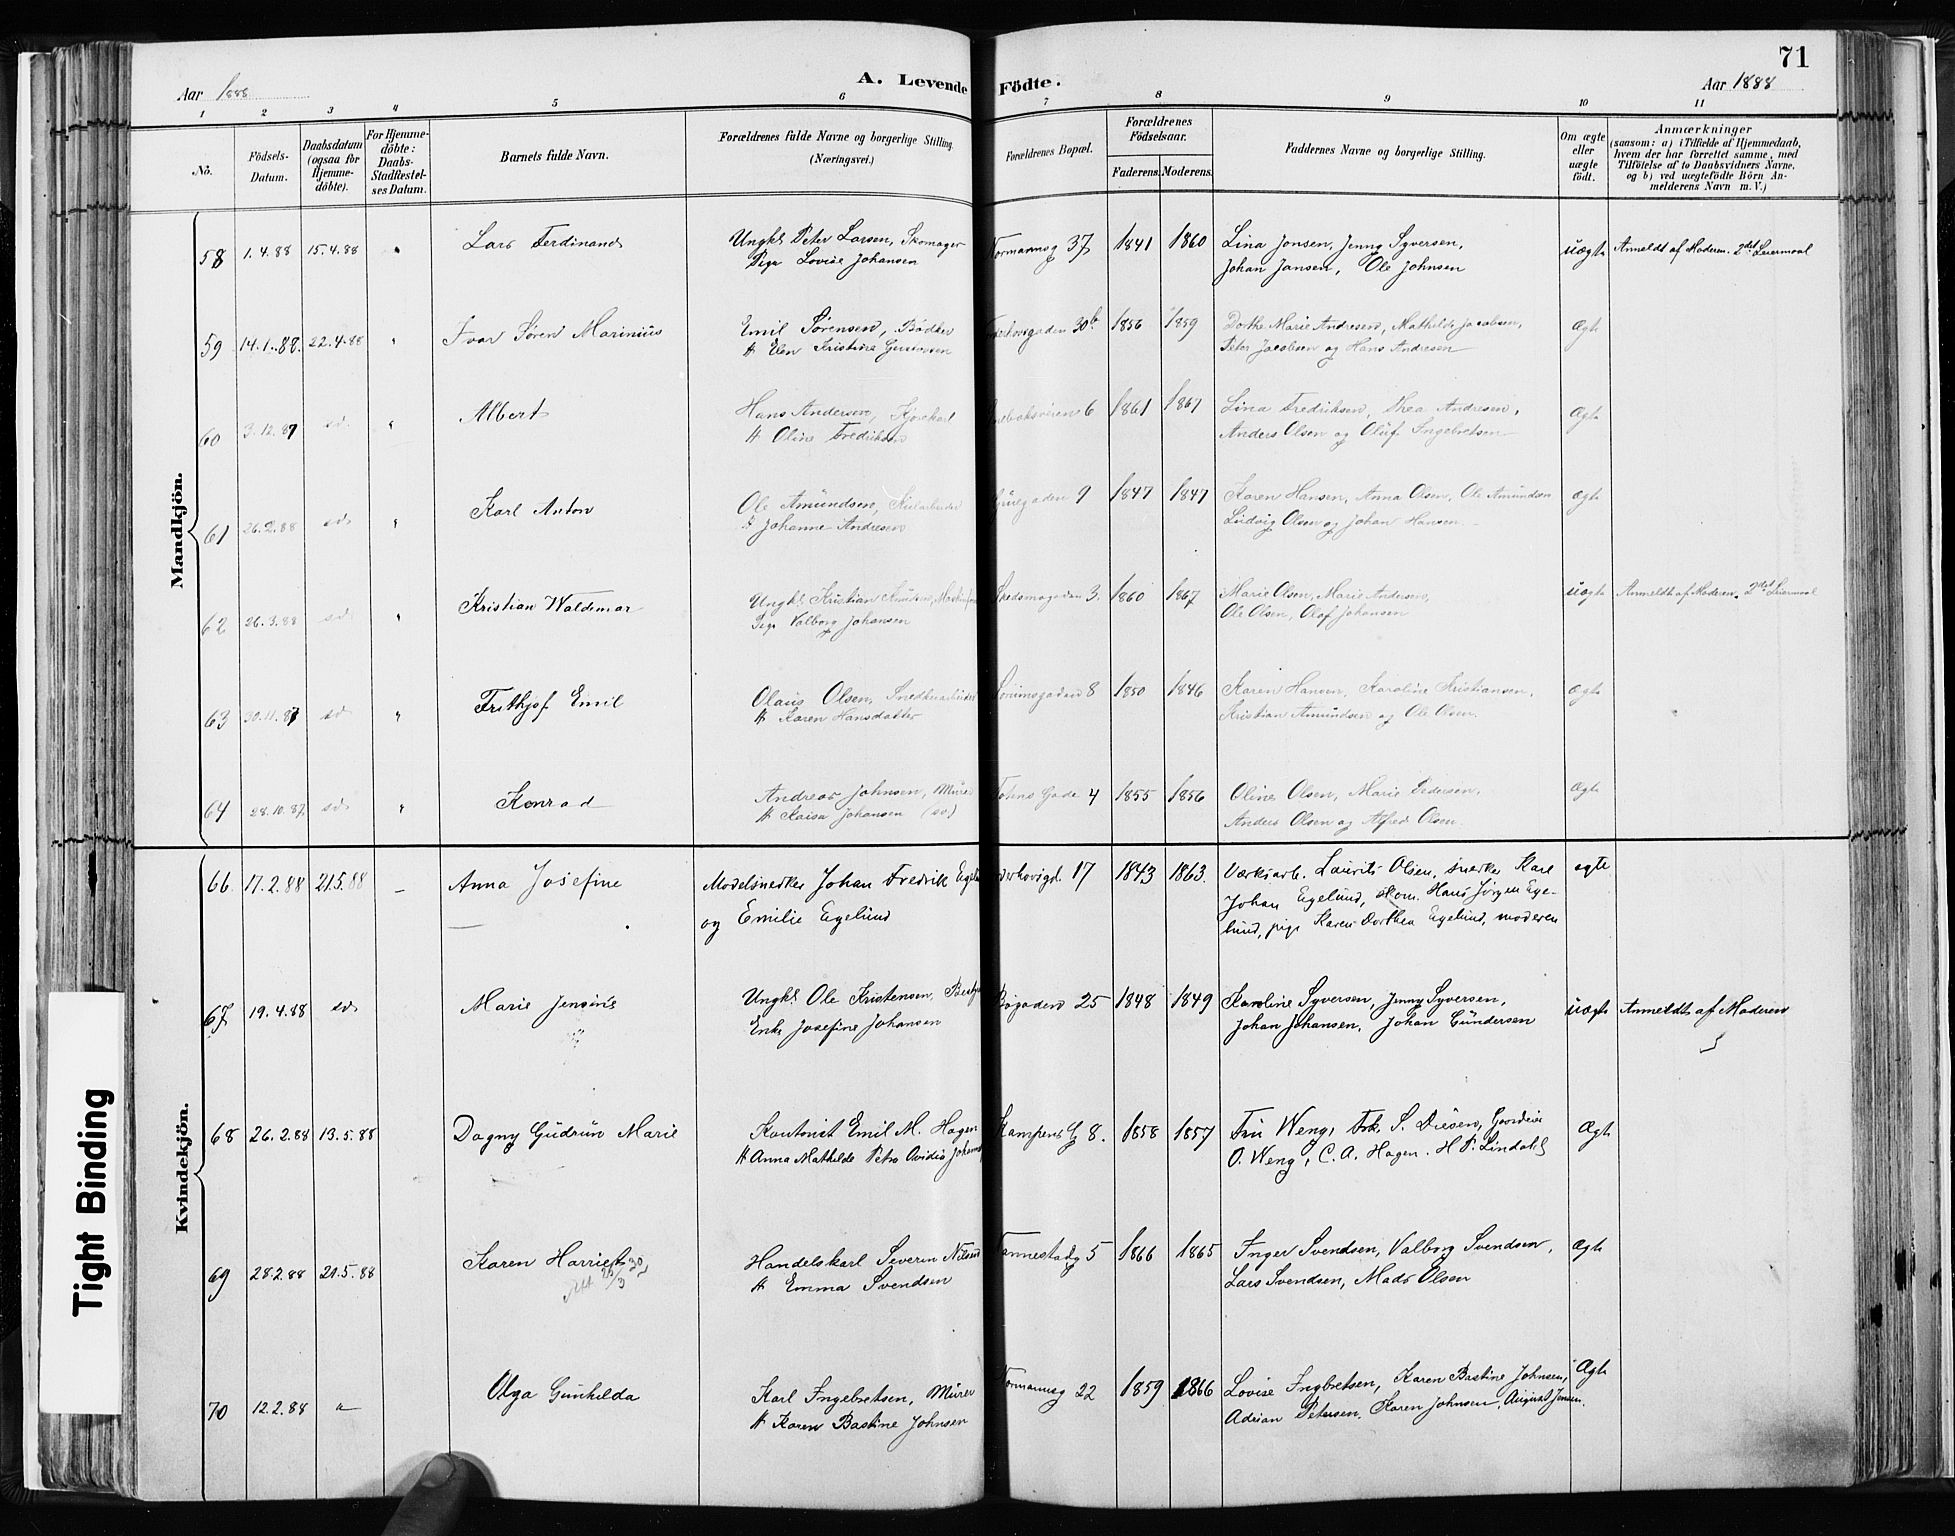 71
Aar 1888
A. Levende Födte.
Aar 1888
1 2 3 4 5 6 7 8 9 10 11
No.
Födsels-Datum.
Daabsdatum (ogsaa for Hjemme-döbte).
For Hjemme-döbte: Daabs-Stadfæstel-ses Datum.
Barnets fulde Navn.
Forældrenes fulde Navne og borgerlige Stilling. (Næringsvei.)
Forældrenes Bopæl.
Forældrenes Födselsaar.
Faderens. Moderens.
Faddernes Navne og borgerlige Stilling.
Om ægte eller uægte födt.
Anmærkninger
(saasom: a) i Tilfælde af Hjemmedaab,
hvem der har forrettet samme, med
Tilföielse af to Daabsvidners Navne,
og b) ved uægtefödte Börn An-
melderens Navn m. V.)
Mandkjön.
58 1.4.88 15.4.88 " Lars Ferdinand Ungk. Peter Larsen, Skomager Normannsg 37 1841 1860 Lina Jonsen, Jenny Syversen, uægte Anmeldt af Moderen. 2det Leiermaal
Pige Lovise Johansen Johan Jansen, Ole Johnsen
59 14.1.88. 22.4.88 " Ivar Søren Marinius Emil Sørensen, Bødker 30b 1856 1859 Dorthe Marie Andresen, Mathilde Jacobsen, Ægte
H Elen Kristine Gustavsen Peter Jacobsen og Hans Andresen
60 3.12.87 sd. " Albert Hans Andersen, 6 1861 1867 Lina Fredriksen, Thea Andresen, Ægte
H Oline Fredriksen Anders Olsen og Oluf Ingebretsen
61 26.2.88 sd. " Karl Anton Ole Amundsen, 9 1847 1847 Karen Hansen, Anna Olsen, Ole Amundsen Ægte
H Johanne Andresen Ludvig Olsen og Johan Hansen
62 26.3.88 sd. " Kristian Waldemar Ungk. Kristian Knudsen, Skedsmogaden 3. 1860 1867 Marie Olsen, Marie Andersen, uægte Anmeldt af Moderen. 2det Leiermaal
Pige Valborg Johansen Ole Olsen, Olaf Johansen
63 30.11.87 sd. " Frithjof Emil Olaus Olsen, Snedkerarbeider Sørumsgaden 8 1850 1846 Karen Hansen, Karoline Kristiansen, Ægte
H Karen Hansdatter Kristian Amundsen og Ole Olsen.
64 28.10.87. sd. " Konrad Andreas Johnsen, Murer Gade 4 1855 1856 Oline Olsen, Marie Pedersen, Ægte
H Kaisa Johansen (sv.) Anders Olsen og Alfred Olsen.
Kvindekjön.
66 17.2.88 21.5.88 — Anna Josefine Modelsnedker Johan Fredrik 17 1843 1863. Værksarb. Laurits Olsen, snedker Karl ægte
og Emilie Egelund Johan Egelund, skom. Hans Jørgen Ege-
lund, pige Karen Dorthea Egelund, moderen
67 19.4.88 sd. Marie Jensine Ungk. Ole Kristensen, Bøgaden 25 1848 1849 Karoline Syversen, Jenny Syversen, uægte Anmeldt af Moderen
Enke Josefine Johansen Johan Johansen, Johan Gundersen
68 26.2.88 13.5.88 Dagny Gudrun Marie Kontorist Emil M. Hagen Kampens G 8. 1858 1857 Fru Weng, Frk. S. Diesen, Ægte
H Anna Mathilde Petra Ovidia O. Weng, C. A. Hagen. H P. Lindahl
69 28.2.88 21.5.88 Karen Harriet Handelskarl Severin Nilsen Tannestadg 5 1866 1865 Inger Svendsen, Valborg Svendsen, Ægte
H Emma Svendsen Lars Svendsen, Mads Olsen
70 12.2.88 Olga Gunhilda Karl Ingebretsen, Murer Normannsg 22 1859 1866 Lovise Ingbretsen, Karen Bastine Johnsen, Ægte
H Karen Bastine Johnsen Adrian Petersen, Karen Johnsen, August Jensen.
Tight Binding